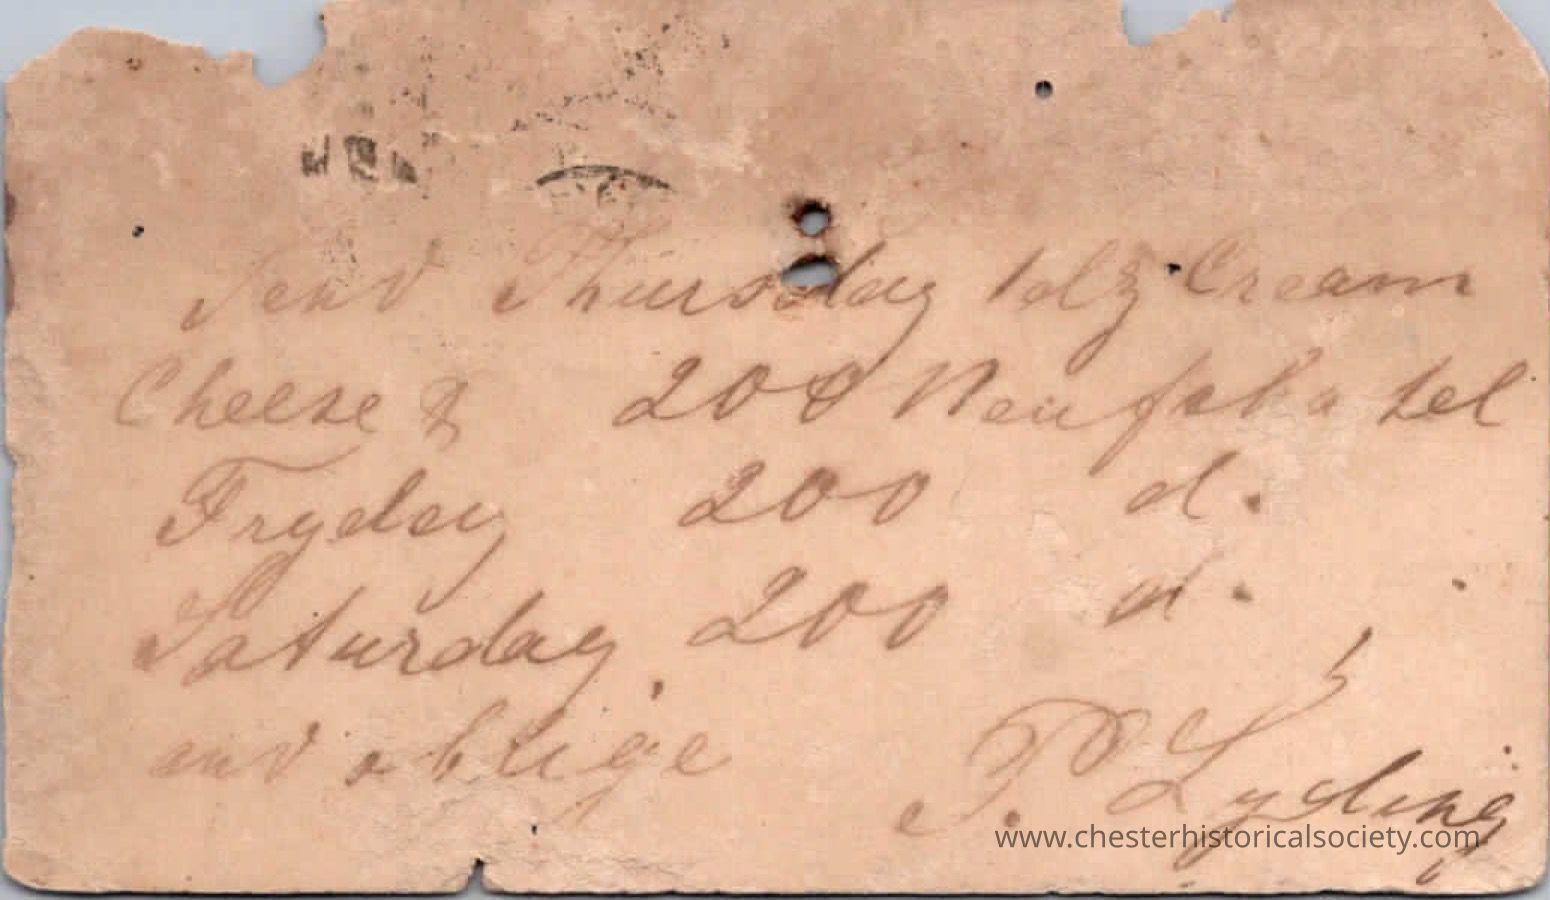 Send Thursday 1 dz Cream
Cheese & 200 Neufchatel
Fryday 200 d.
Saturday 200 d.
and oblige
P.
www.chesterhistoricalsociety.com